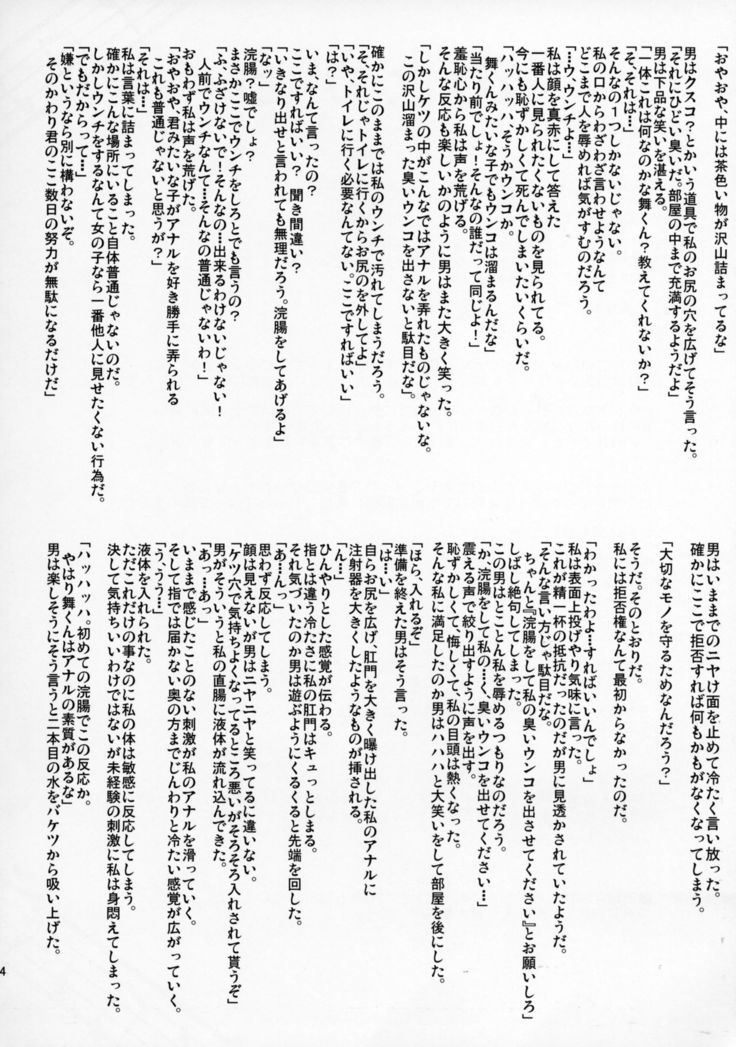 「おやおや、中には茶色い物が沢山詰まってるな」
男はクスコ？とかいう道具で私のお尻の穴を広げてそう言った。
「それにひどい臭いだ。部屋の中まで充満するようだよ」
男は下品な笑いを湛える。
「一体これは何なのかな舞くん？教えてくれないか？」
「そ、それは…」
そんなの1つしかないじゃない。
私の口からわざわざ言わせようなんて
どこまで人を辱めれば気がすむのだろう。
「…ウ、ウンチよ…」
私は顔を真赤にして答えた
一番人に見られたくないものを見られてる。
今にも恥ずかしくて死んでしまいたいくらいだ。
「ハッハッハ、そうかウンコか。
舞くんみたいな子でもウンコは溜まるんだな」
「当たり前でしょ！そんなの誰だって同じよ！」
羞恥心から私は声を荒げる。
そんな反応も楽しいかのように男はまた大きく笑った。
「しかしケツの中がこんなではアナルを弄れたものじゃないな。
この沢山溜まった臭いウンコを出さないと駄目だな」。
確かにこのままでは私のウンチで汚れてしまうだろう。
「そ、それじゃトイレに行くからお尻のを外してよ」
「いや、トイレに行く必要なんてない。ここですればいい」
「は？」
いま、なんて言ったの？
ここですればいい？　聞き間違い？
「いきなり出せと言われても無理だろう。浣腸をしてあげるよ」
「なッ」
浣腸？嘘でしょ？
まさかここでウンチをしろとでも言うの？
「ふ、ふざけないで！そんなの…出来るわけないじゃない！
人前でウンチなんて…そんなの普通じゃないわ！」
おもわず私は声を荒げた。
「おやおや、君みたいな子がアナルを好き勝手に弄られる
これも普通じゃないと思うが？」
「それは…」
私は言葉に詰まってしまった。
確かにこんな場所にいること自体普通じゃないのだ。
しかしウンチをするなんて女の子なら一番他人に見せたくない行為だ。
「でもだからって…」
「嫌というなら別に構わないぞ。
そのかわり君のここ数日の努力が無駄になるだけだ」
男はいままでのニヤけ面を止めて冷たく言い放った。
確かにここで拒否すれば何もかもがなくなってしまう。
「大切なモノを守るためなんだろう？」
そうだ。そのとおりだ。
私には拒否権なんて最初からなかったのだ。
「わかったわよ…すればいいんでしょ」
私は表面上投げやり気味に言った。
これが精一杯の抵抗だったのだが男に見透かされていたようだ。
「そんな言い方じゃ駄目だな。
ちゃんと『浣腸をして私の臭いウンコを出させてください』とお願いしろ」
しばし絶句してしまった。
この男はとことん私を辱めるつもりなのだろう。
「か、浣腸をして私の…く、臭いウンコを出せてください…」
震える声で絞り出すように声を出す。
恥ずかしくて、悔しくて、私の目頭は熱くなった。
そんな私に満足したのか男はハハハと大笑いをして部屋を後にした。
「ほら、入れるぞ」
準備を終えた男はそう言った。
「は…い」
自らお尻を広げ、肛門を大きく曝け出した私のアナルに
注射器を大きくしたようなものが挿される。
「ん…」
ひんやりとした感覚が伝わる。
指とは違う冷たさに私の肛門はキュっとしまる。
それ気づいたのか男は遊ぶようにくるくると先端を回した。
「あ…んっ」
思わず反応してしまう。
顔は見えないが男はニヤニヤと笑ってるに違いない。
「ケツ穴で気持ちよくなってるところ悪いがそろそろ入れされて貰うぞ」
男がそういうと私の直腸に液体が流れ込んできた。
「あっ…あっ」
いままで感じたことのない刺激が私のアナルを滑っていく。
そして指では届かない奥の方までじんわりと冷たい感覚が広がっていく。
「う、うう…」
液体を入れられた。
ただこれだけの事なのに私の体は敏感に反応してしまう。
決して気持ちいいわけではないが未経験の刺激に私は身悶えてしまった。
「ハッハッハ。初めての浣腸でこの反応か。
やはり舞くんはアナルの素質があるな」
男は楽しそうにそう言うと二本目の水をバケツから吸い上げた。
4